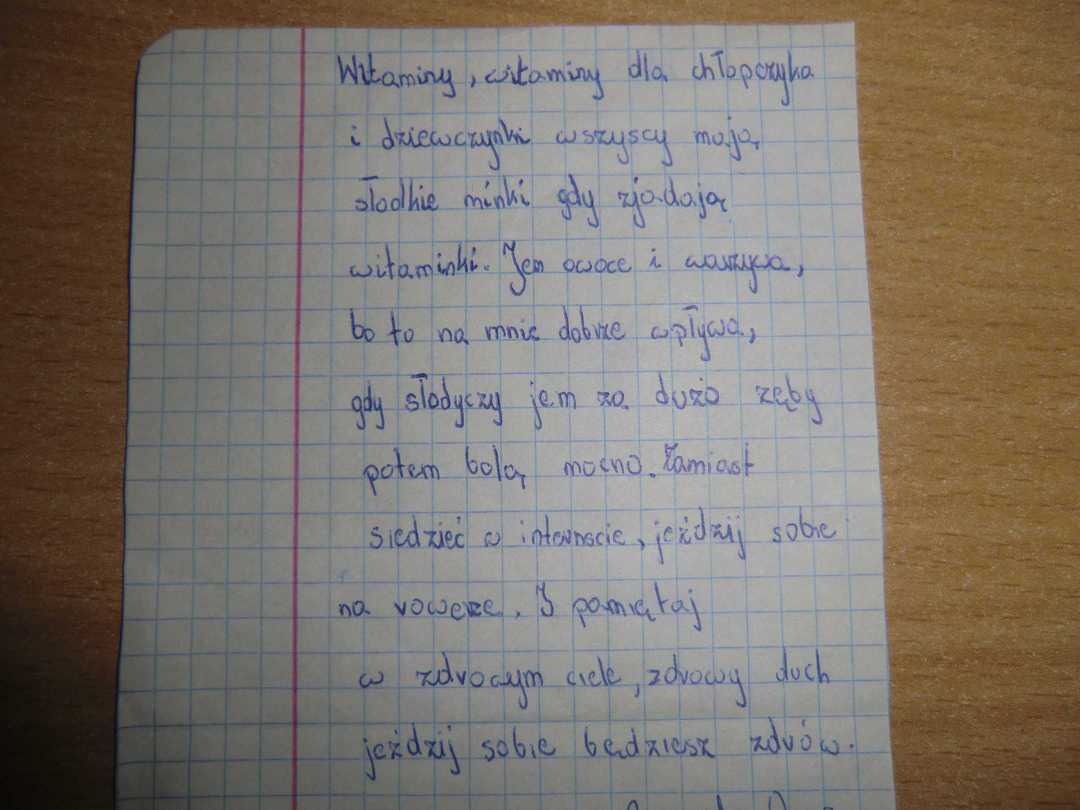 Witaminy, witaminy dla chłopczyka
i dziewczynki wszyscy mają
słodkie minki gdy zjadają
witaminki. Jem owoce i warzywa,
bo to na mnie dobrze wpływa,
gdy słodyczy jem za dużo zęby
potem bolą mocno. Zamiast
siedzieć w internecie, jeździj sobie
na rowerze. I pamiętaj
w zdrowym ciele, zdrowy duch
jeździj sobie będziesz zdrów.